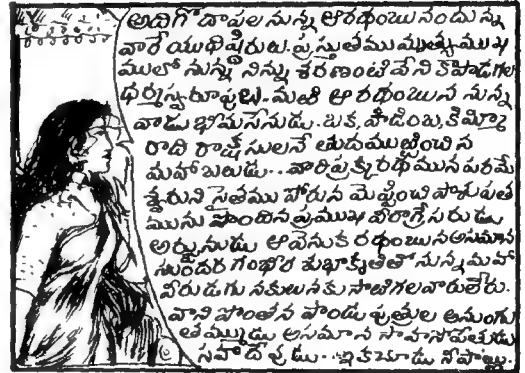 అదిగో దాపల నున్న ఆరథంబునందున్న
వారే యుధిష్ఠిరులు. ప్రస్తుతము మృత్యుముఖ
ములో నున్న నిన్ను శరణంటివేని కాపాడగల
ధర్మస్వరూపులు. మఱి ఆ రథంబున నున్న
వాడు భీమసేనుడు. బక, హిడింబ, కిమ్మీ
రాది రాక్షసులనే తుదముట్టించిన
మహాబలుడు.. వారిప్రక్కరథమున పరమే
శ్వరుని సైతము పోరున మెప్పించి పాశుపత
మును పొందిన ప్రముఖ వీరాగ్రేసరుడు
అర్జునుడు ఆవెనుక రథంబున అసమాన
సుందర గంభీర శుభాకృతితో నున్న మహా
వీరుడగు నకులునకు సాటిగలవారు లేరు.
వాని పొంతన పాండు పుత్రుల అనుంగు
తమ్ముడు అసమాన సాహసోపేతుడు
సహదేవుడు.. ఇకచూడు నీపాట్లు.